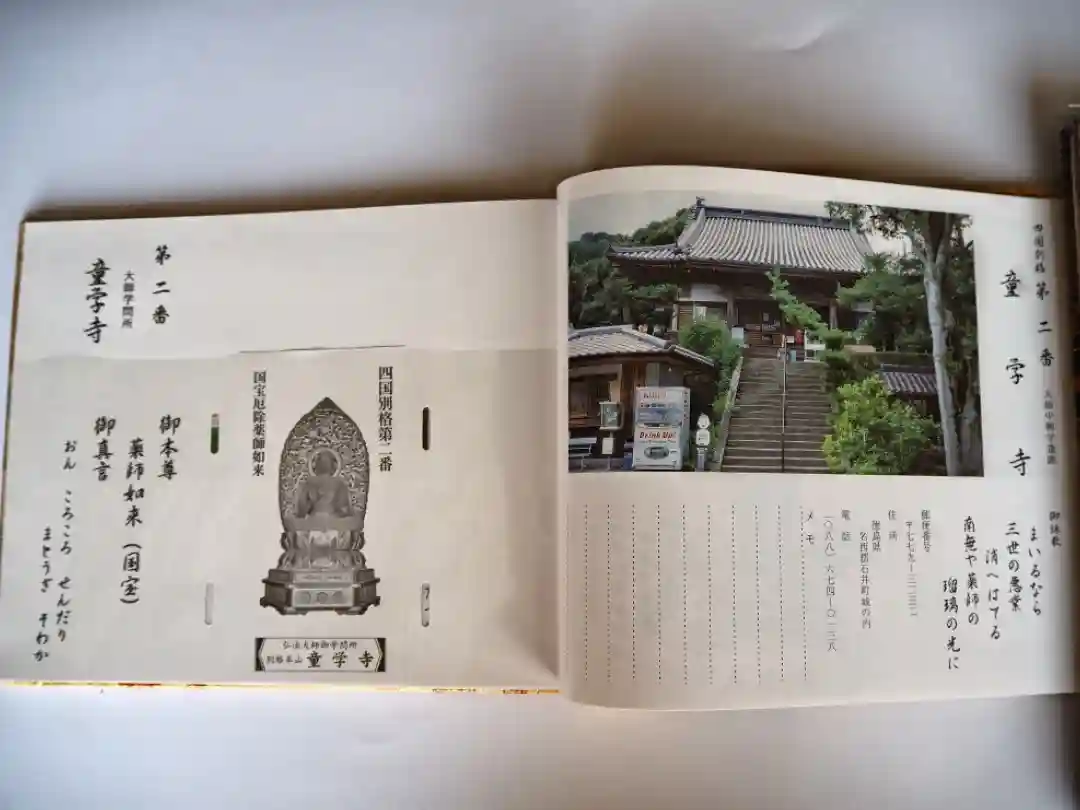 四国別格 第二番
童学寺
御詠歌
まいるなら
三世の悪業
消へはてる
南無や薬師の
瑠璃の光に
郵便番号
〒七七九ー三二三二
住所
徳島県
名西郡石井町城の内
電話
(〇八八)六七四ー〇一三八
メモ
Drink Up!
第二番
大師学問所
童学寺
四国別格第二番
国宝厄除薬師如来
弘法大師御学問所
別格本山 童学寺
御本尊
薬師如来(国宝)
御真言
おん ころころ せんだり
まとうぎ そわか